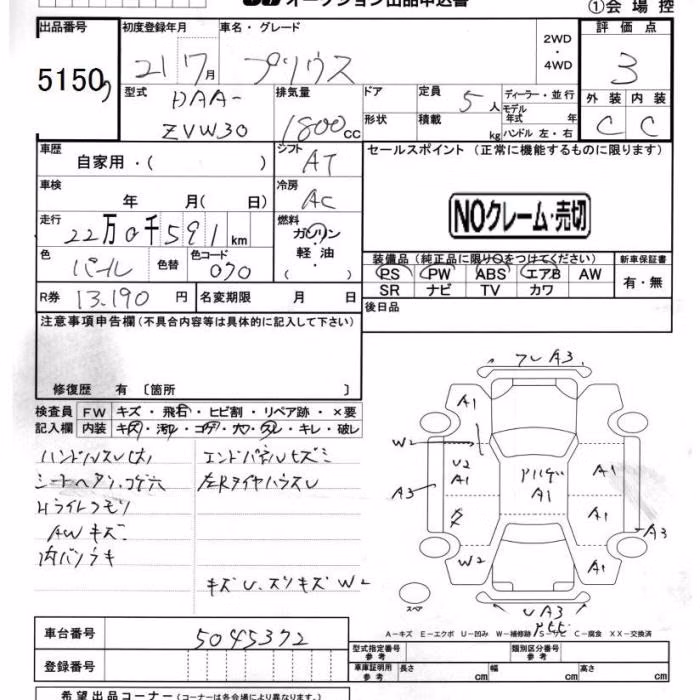 オークション出品申込書
①会場控
出品番号 初度登録年月 車名・グレード 評価点
2WD
・
4WD
5150 21 7月 プリウス 3
型式 排気量 ドア 定員 5人 ディーラー・並行 外装 内装
モデル年式 年
DAA-
ZVW30 1800cc 形状 積載 kg ハンドル 左・右 C C
車歴 シフト セールスポイント (正常に機能するものに限ります)
自家用・( ) AT
車検 冷房
年 月( 日) AC
NOクレーム・売切
走行 燃料
22万0千591km ガソリン
・軽油
( ・ )
色 色替 色コード 装備品 (純正品に限り○をつけてください) 新車保証書
パール 070 PS PW ABS エアB AW 有・無
SR ナビ TV カワ
R券 13.190円 名変期限 月 日 後日品
注意事項申告欄 (不具合内容等は具体的に記入して下さい)
修復歴 有 〔箇所 〕
検査員 FW キズ・飛石・ヒビ割・リペア跡・×要
記入欄 内装 キズ・汚れ・コゲ・穴・スレ・キレ・破レ
シートヘタリ・コゲ穴
HライトクモリAWキズ
エンドパネルヒズミ
左RタイヤハウスU
キズU、スリキズW2
フレA3
A1
W2
U2
A1
A1
A1
A3
A1
W2
A1
A3
UA3
スペア
A-キズ E-エクボ U-凹み W-補修跡 S-サビ C-腐食 XX-交換済
車台番号 5045372
型式指定番号 参考 類別区分番号 参考
登録番号 車庫証明用 参考 長さ cm 幅 cm 高さ cm
希望出品コーナー (コーナーは各会場により異なります)